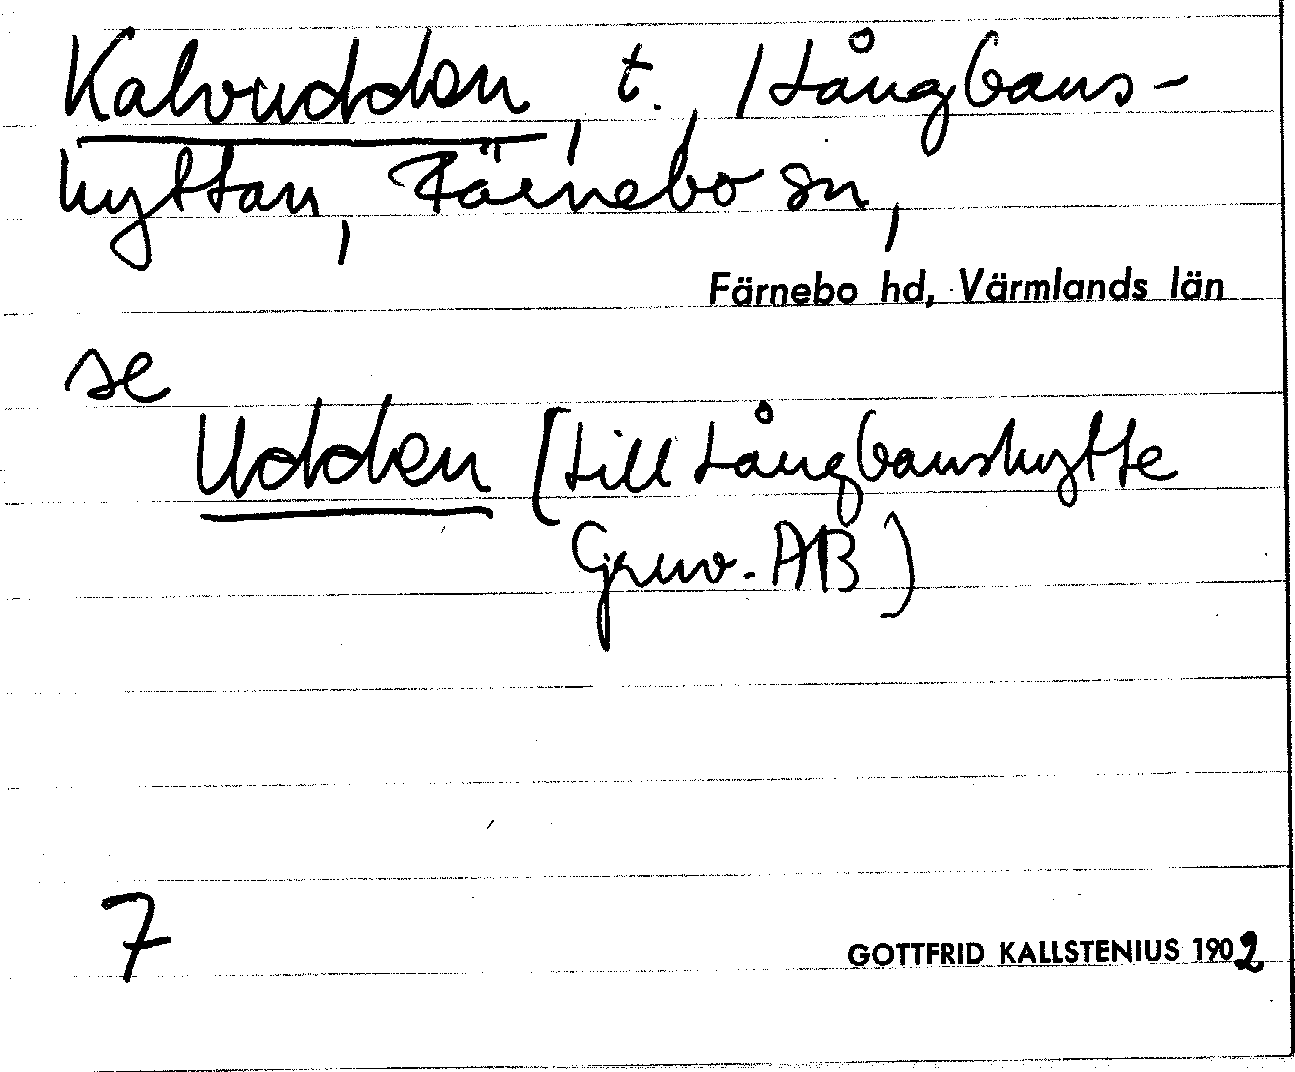 Kalvudden, t., Långbans-
hyttan, Färnebo sn,
Färnebo hd, Värmlands län
se
Udden (till Långbanshytte
Gruv. AB)
7
GOTTFRID KALLSTENIUS 1902